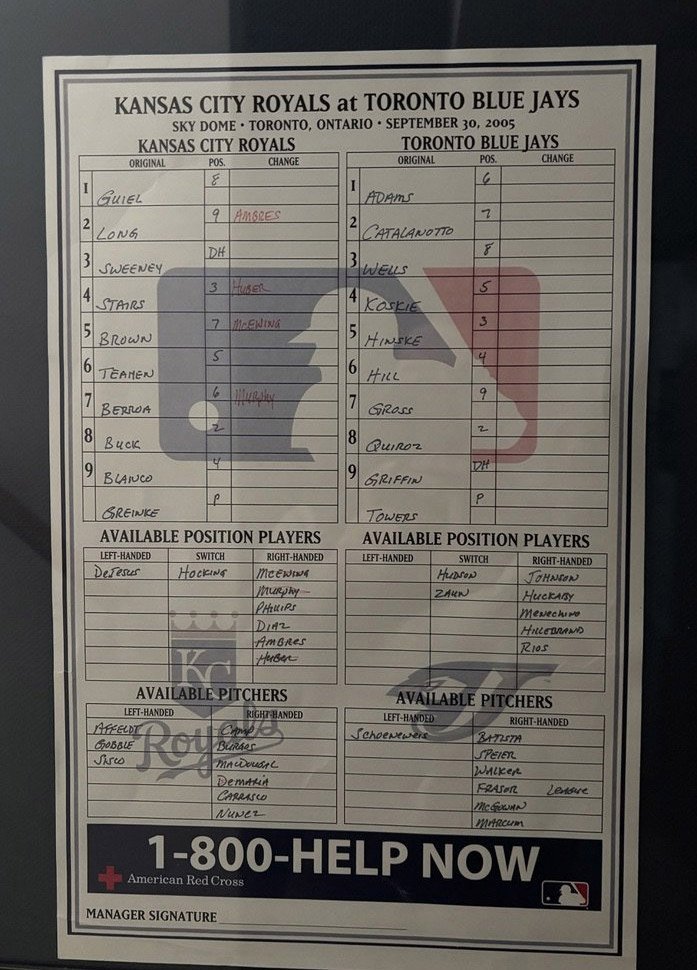 KANSAS CITY ROYALS at TORONTO BLUE JAYS
SKY DOME • TORONTO, ONTARIO • SEPTEMBER 30, 2005
KANSAS CITY ROYALS
ORIGINAL POS. CHANGE
1 GUIEL 8
2 LONG 9 AMBRES
3 SWEENEY DH
4 STAIRS 3 HUBER
5 BROWN 7 McEWING
6 TEAHEN 5
7 BERROA 6 MURPHY
8 BUCK 2
9 BLANCO 4
GREINKE P
TORONTO BLUE JAYS
ORIGINAL POS. CHANGE
1 ADAMS 6
2 CATALANOTTO 7
3 WELLS 8
4 KOSKIE 5
5 HINSKE 3
6 HILL 4
7 GROSS 9
8 QUIROZ 2
9 GRIFFIN DH
TOWERS P
AVAILABLE POSITION PLAYERS
LEFT-HANDED SWITCH RIGHT-HANDED
DeJESUS HOCKING McEWING
MURPHY
PHILLIPS
DIAZ
AMBRES
HUBER
AVAILABLE POSITION PLAYERS
LEFT-HANDED SWITCH RIGHT-HANDED
HUDSON JOHNSON
ZAUN HUCKABY
MENECHINO
HILLEBRAND
RIOS
KC
Royals
AVAILABLE PITCHERS
LEFT-HANDED RIGHT-HANDED
AFFELDT CAMP
GOBBLE BURGOS
SISCO MACDOUGAL
DEMARIA
CARRASCO
NUNEZ
AVAILABLE PITCHERS
LEFT-HANDED RIGHT-HANDED
SCHOENEWEIS BATISTA
SPEIER
WALKER
FRASOR LEAGUE
McGOWAN
MARCUM
1-800-HELP NOW
American Red Cross
MANAGER SIGNATURE